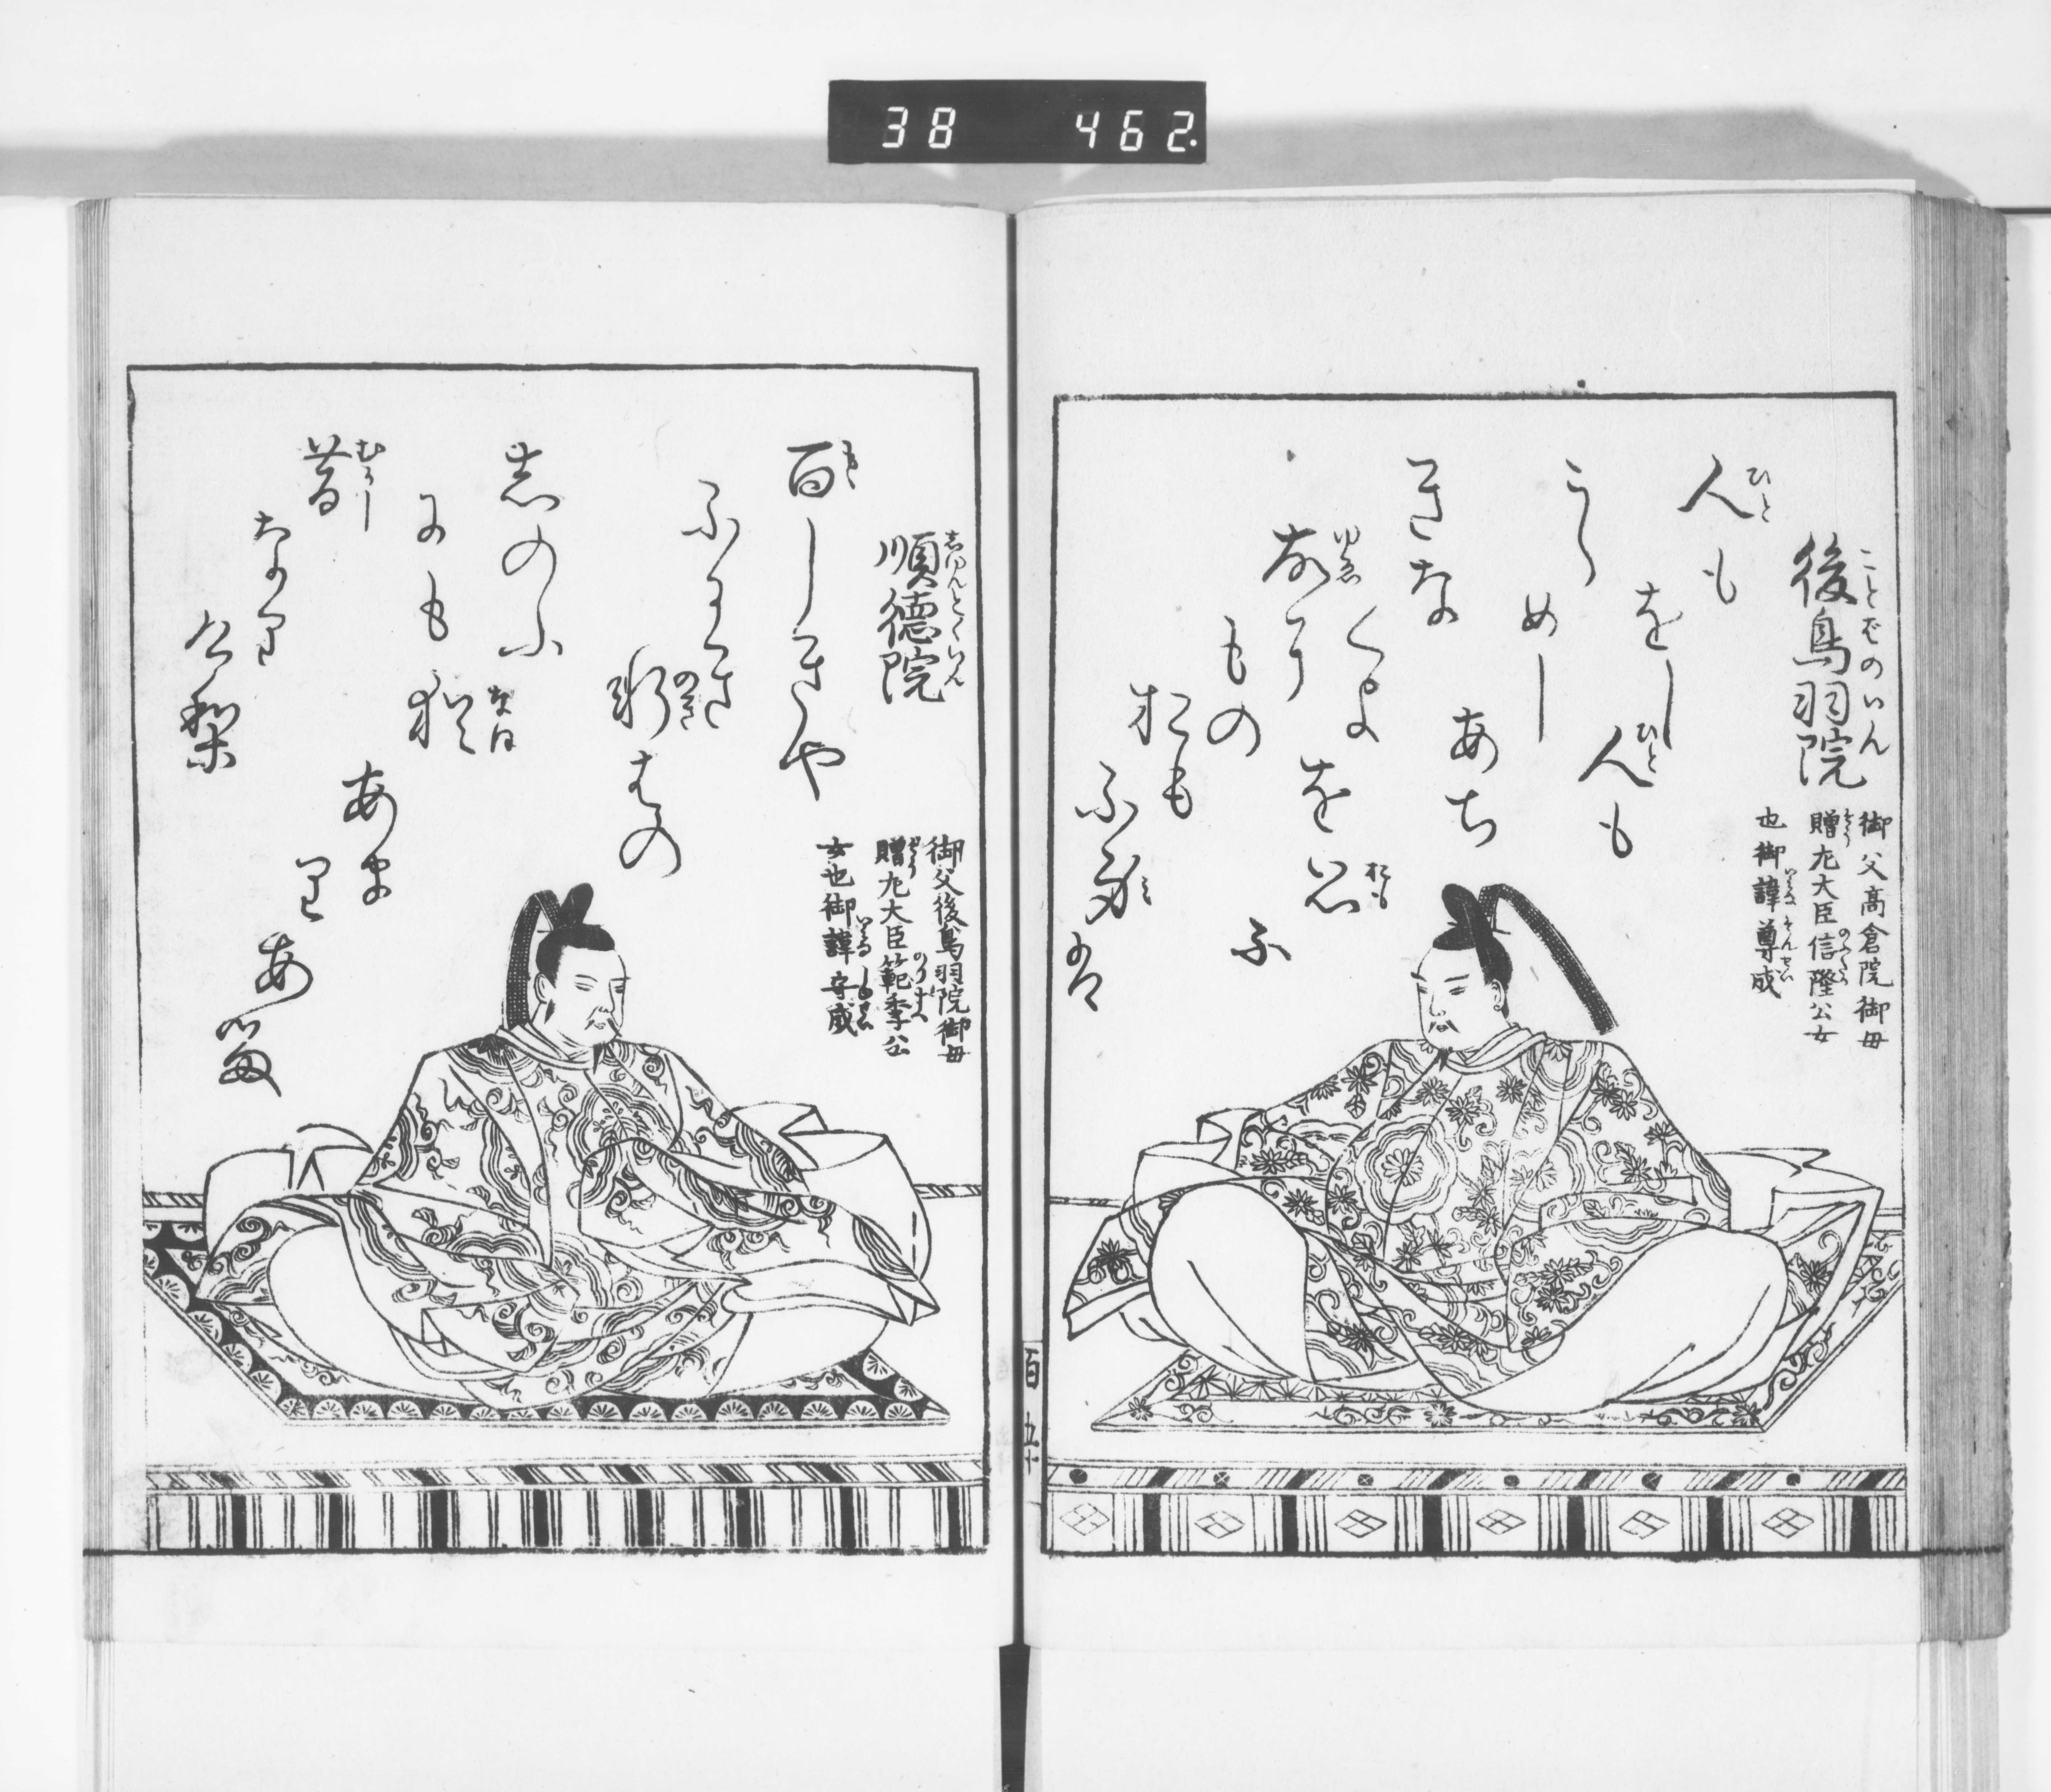 38 462.
後鳥羽院
ことばのいん
御父高倉院御母
贈左大臣信隆公女
也御諱尊成
人も
をし
人も
うら
めし
あぢ
きな
くよ
を思
ふ
ゆゑ
故に
もの
おも
ふ身
は
百五十
順徳院
じゆんとくいん
御父後鳥羽院御母
贈左大臣範季公
女也御諱守成
百しきや
ふるき
軒ばの
志のふ
にも猶
なほ
あま
り
ある
昔
むかし
なり
けり